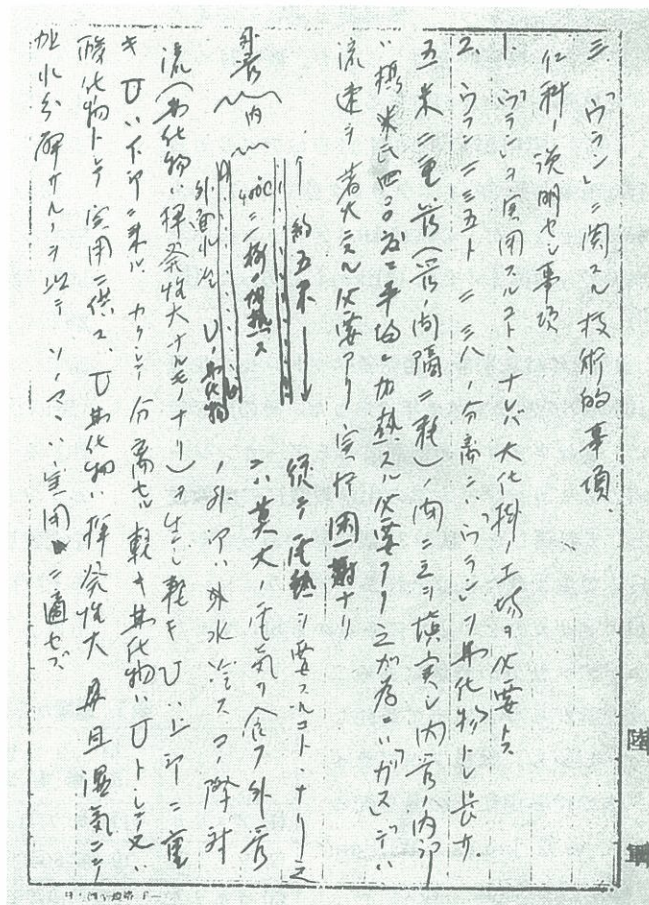 三、「ウラン」ニ関スル技術的事項
仁科ノ説明セシ事項
1. 「ウラン」ヲ実用スルコトヽナレバ大仕掛ノ工場ヲ必要トス
2. ウラン二三五ト二三八ノ分離ニハ「ウラン」ヲ弗化物トシ長サ
五米二重管(管ノ間隔二粍)ノ間ニ之ヲ填実シ内管ノ内部
ハ摂氏四〇〇度ニ平均ニ加熱スル必要アリ之ガ為ニハ「ガス」デハ
流速ヲ著大ニスル必要アリ実行困難ナリ
↑約五米↓
400℃ニ加熱ス
外面水冷
Uノ弗化物
外管
内
須テ電熱ヲ要スルコトヽナリ之
ニハ莫大ノ電気ヲ食フ外管
ノ外部ハ外水冷スコノ際対
流(弗化物ハ揮発性大ナルモノナリ)ヲ生シ軽キUハ上部ニ重
キUハ下部ニ来ル カクシテ分離セル軽キ弗化物ハUトシテ又ハ
酸化物トシテ実用ニ供ス、U弗化物ハ揮発性大 且湿気ニテ
加水分解サルヽヲ以テ ソノマヽハ実用ニ適セズ
陸
軍